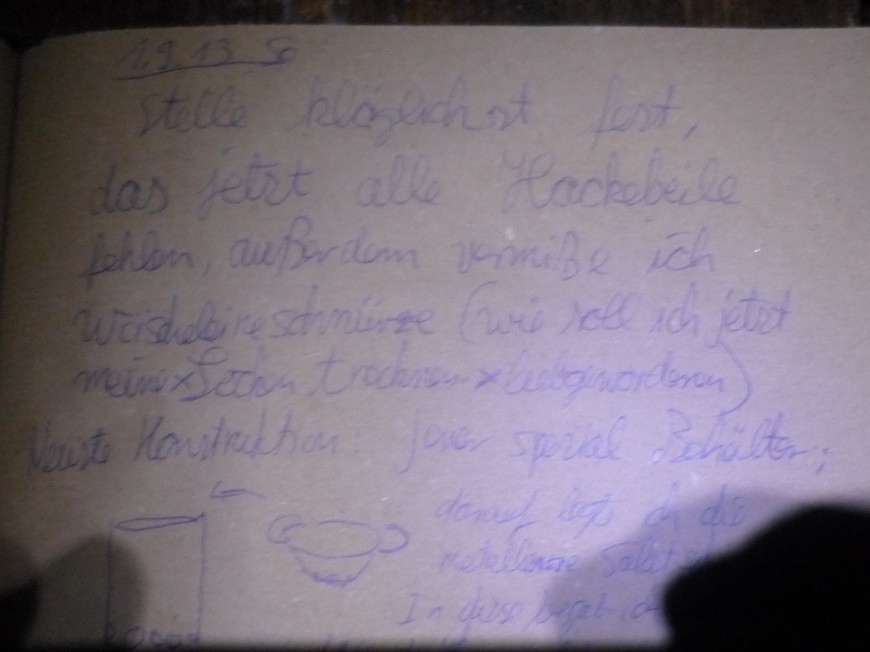 1.9 13 So
Stelle kläglichst fest,
das jetzt alle Hackebeile
fehlen, außerdem vermiße ich
Wäscheleineschnürre (wie soll ich jetzt
meine x Socken trocknen x liebgewordenen)
Neuste Konstruktion. spezial Behälter;
darauf legte ich die
metallerne
In diese